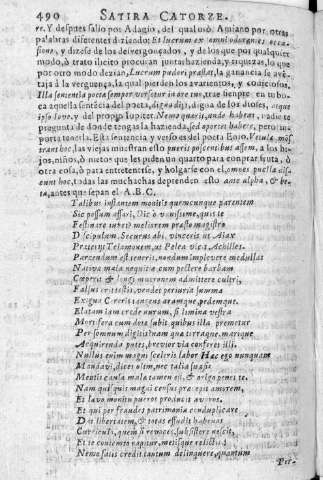 490 SATIRA CATORZE.
re. Y despues salio por Adagio, del qual usò Amiano por otras
palabras diferentes diziendo; Et lucrum ex omni odorantes occa-
sione, y dizese de los desvergonçados, y de los que por qualquier
modo, ò trato ilicito procuran juntar hazienda, y riquezas, lo que
por otro modo dezian, Lucrum pudori præstat, la ganancia se aven-
taja à la verguença, la qual pierden los avarientos, y codiciosos.
Illa sententia poeta semper versetur in ore tuo, trae siempre en tu bo-
ca aquella sentécia del poeta, digna diis, digna de los dioses, atque
ipso Iove, y del propio Iupiter. Nemo quærit, unde habeas, nadie te
pregunta de donde tengas la hazienda, sed oportet habere, pero im-
porta tenerla. Esta sentencia, y verso es del poeta Enio. Vetulæ mos-
trant hoc, las viejas muestran esto pueris poscentibus assem, a los hi-
jos, niños, ò nietos que les piden un quarto para comprar fruta, ò
otra cosa, ò para entretenerse, y holgarse con el, omnes puellæ dis-
cunt hoc, todas las muchachas deprenden esto ante alpha, & be-
ta, antes que sepan el A.B.C.
Talibus instantem monitis quemcunque parentem
Sic possum affari, Dic ò vanissime, quis te
Festinare iubet? meliorem præsto magistro
Discipulum. Securus abi, vinceris, ut Aiax
Præteriit Telamonem, ut Pelea vicit Achilles.
Parcendum est teneris, nondum implevere medullas
Nativa mala nequitiæ cum pectere barbam
Cœperit & longi mucronem admittere cultri,
Falsus erit testis, vendet periuria summa
Exigua Cereris tangens aramque, pedemque.
Elatam iam crede nurum, si limina vestra
Mortifera cum dote subit quibus illa premetur
Per somnum digitis! nam quæ terraque, marique
Acquirenda putes, brevior via conferet illi.
Nullus enim magni sceleris labor Hæc ego nunquam
Mandavi, dices olim, nec talia suasi
Mentis causa malæ tamen est, & origo penes te.
Nam quisquis magni census præcepit amorem,
Et lævo monitu pueros producit avaros.
Et qui per fraudes patrimonia conduplicare
Dat libertatem, & totas effundit habenas
Curriculo, quem si revoces, subsistere nescit,
Et te contempto rapitur, metisque relictis
Nemo satis credit tantum delinquere, quantum
Per-